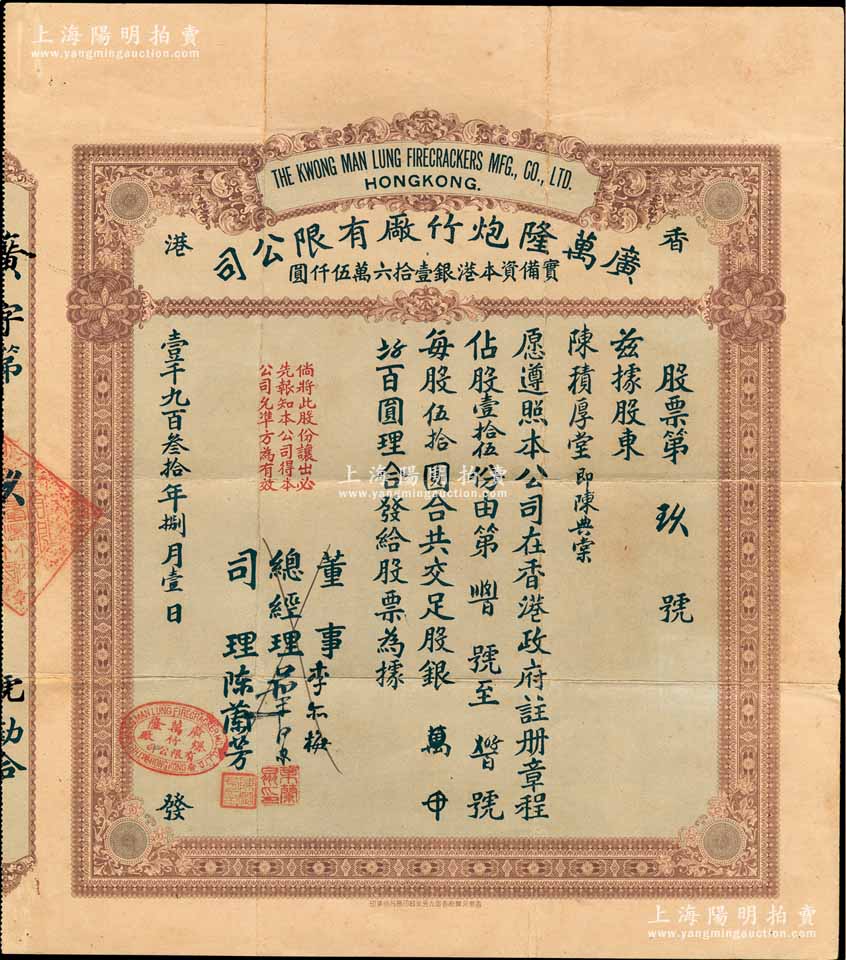 上海陽明拍賣
www.yangmingauction.com
上海陽明拍賣
www.yangmingauction.com
THE KWONG MAN LUNG FIRECRACKERS MFG., CO., LTD.
HONGKONG.
香港
廣萬隆炮竹廠有限公司
實備資本港銀壹拾六萬伍仟圓
股票第玖號
茲據股東
陳積厚堂即陳典棠
愿遵照本公司在香港政府註册章程
佔股壹拾伍份由第號至號
每股伍拾圓合共交足股銀萬
百圓理合發給股票為據
倘將此股份讓出必
先報知本公司得本
公司允準方為有效
董事李
總經理
司理陳蘭芳
壹千九百叁拾年捌月壹日發
廣字第
玖
號勷合
MAN LUNG FIRECRACKER
廣萬隆
爆竹廠
有限公司
上海陽明拍賣
www.yangmingauction.com
上海陽明拍賣
www.yangmingauction.com